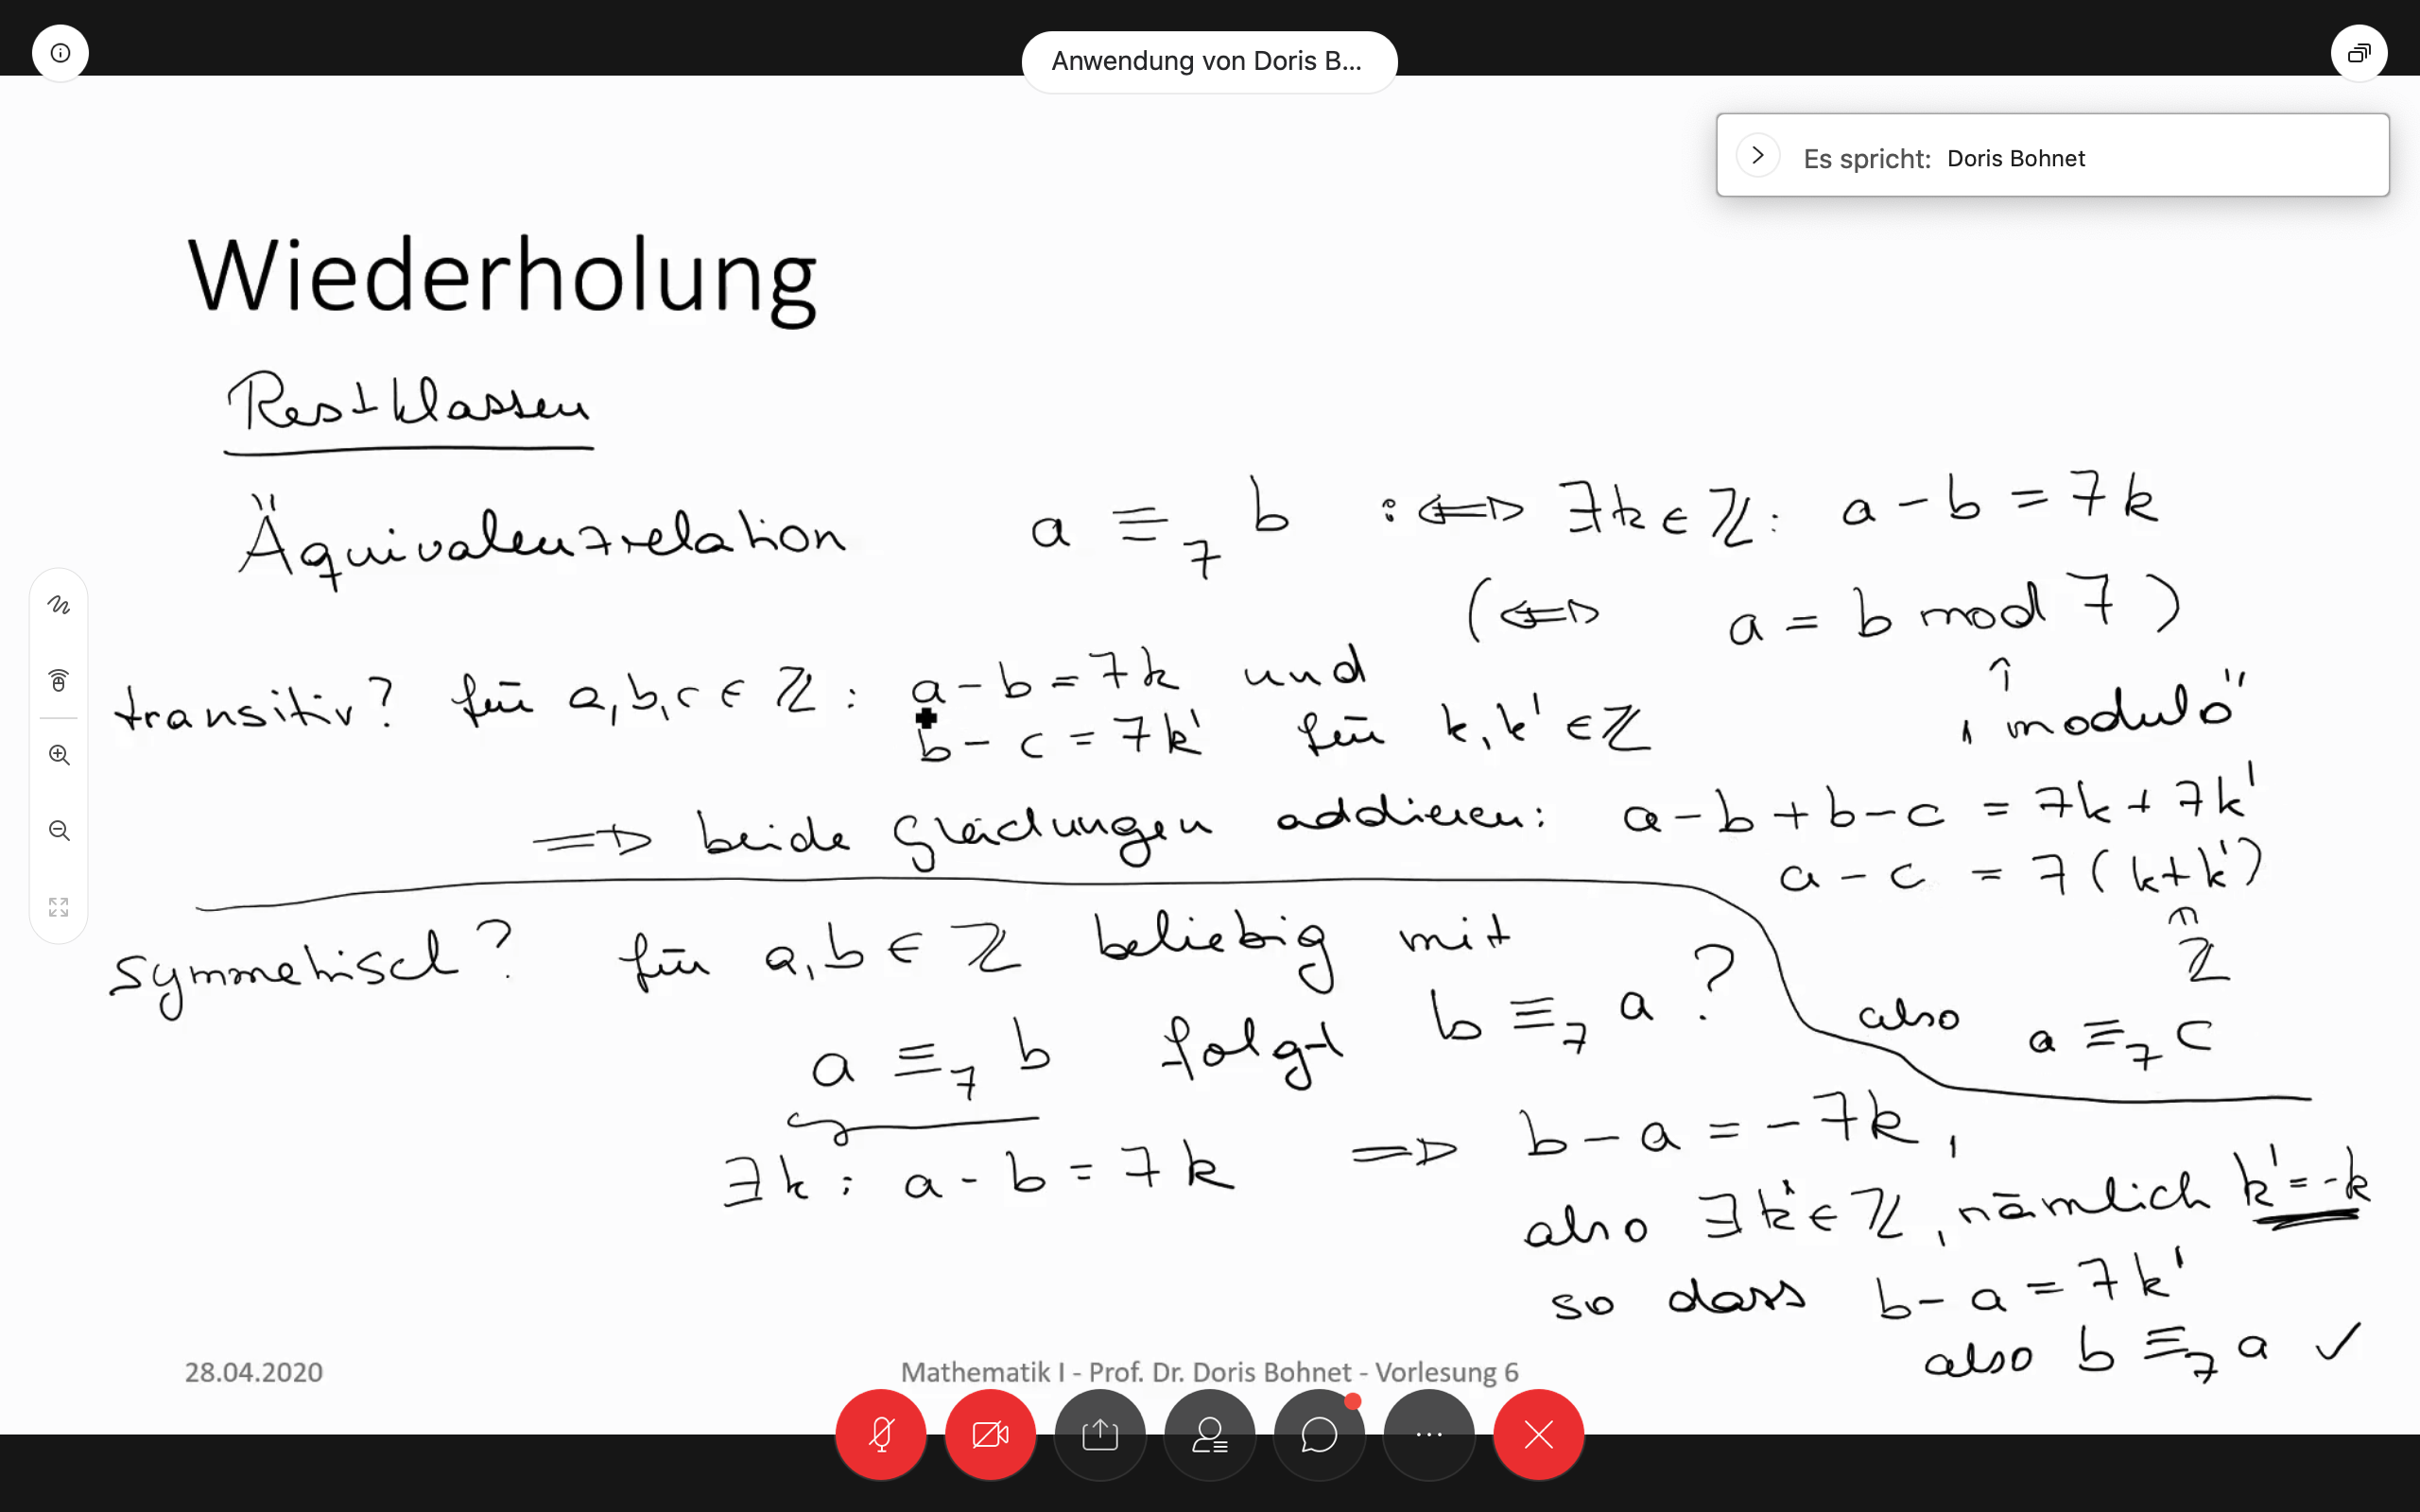 Anwendung von Doris B...
Es spricht: Doris Bohnet
Wiederholung
Restklassen
Äquivalenzrelation a ≡₇ b :⟺ ∃k∈ℤ: a-b=7k
(⟺ a = b mod 7)
↑
"modulo"
transitiv? für a,b,c ∈ ℤ: a-b=7k und
b-c=7k' für k,k' ∈ ℤ
⟹ beide Gleichungen addieren: a-b+b-c = 7k+7k'
a-c = 7(k+k')
∈
ℤ
also a ≡₇ c
symmetrisch? für a,b ∈ ℤ beliebig mit
a ≡₇ b folgt b ≡₇ a ?
∃k: a-b=7k ⟹ b-a=-7k,
also ∃k'∈ℤ, nämlich k'=-k
so dass b-a=7k'
also b ≡₇ a ✓
28.04.2020
Mathematik I - Prof. Dr. Doris Bohnet - Vorlesung 6